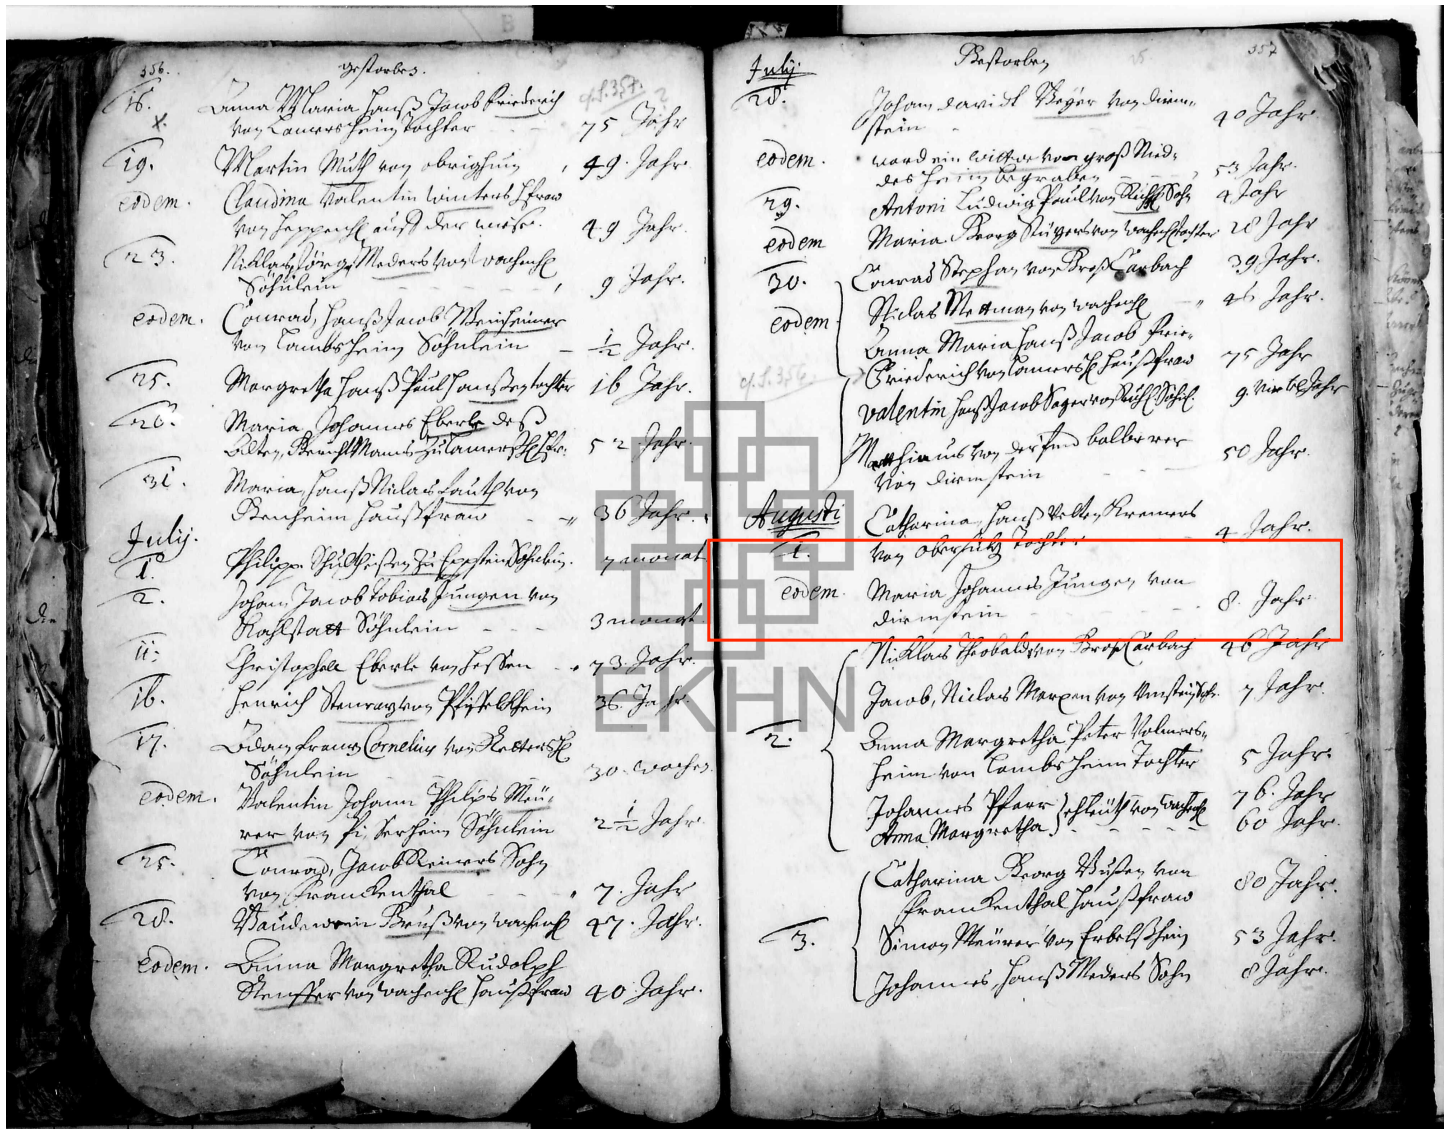 356.
gestorben.
cf. S. 357. ?
16. Anna Maria Hanß Jacob Friederich
von Lamersheim tochter 75 Jahr
19. Martin Muth von obrigheim, 49. Jahr.
eodem. Claudina Valentin Winters hfraw
von Heppenh. auß der wise. 49 Jahr.
23. Niklaus Jörg Meders von wachenh.
Söhnlein, 9 Jahr.
eodem. Conrad, Hanß Jacob Weinheimer
von Lambsheim Söhnlein ½ Jahr.
25. Margretha Hanß Paul Hanßen tochter 16 Jahr.
26. Maria, Johannes Eberle deß
Alten, 52. Jahr.
31. Maria, Hanß Niclas Lauth von
Benheim haußfraw 36 Jahr.
Julij.
1. Philipp Schultheißen zu Eppstein Söhnlein. 7 monat.
2. Johan Jacob Tobias Jungen von
Kahlstatt Söhnlein 3 monat.
11. Christophell Eberle von Hessen 73. Jahr.
16. Henrich von 36. Jahr.
17. Adam Frantz Cornelius von
Söhnlein 30. wochen.
eodem. Valentin Johann Philips Meü-
rer von Söhnlein 2½ Jahr.
25. Conrad, Jacob Reiners Sohn
von Franckenthal 7. Jahr
28. von wachenh. 47. Jahr.
eodem. Anna Margretha Rudolph
von wachenh. haußfraw 40. Jahr.
357
Gestorben
Julij.
28. Johan david Beyer von dirm-
stein 40 Jahr.
eodem. ward ein wittwe von groß Nied-
desheim begraben 53 Jahr.
29. Antoni Ludwig Paul von Sohn 4 Jahr
eodem Maria Georg von wachenh. tochter 28 Jahr
30. Conrad Stephan von Groß Carbach 39 Jahr.
eodem Niclas Mettman von wachenh. 46 Jahr.
Anna Maria Hanß Jacob Frie-
cf. S. 356. Friederich von Lamersh. haußfraw 75 Jahr
Valentin Hanß Jacob Sager von 9. viertel Jahr
Matthias von der
von dirmstein 50 Jahr.
Augusti Catharina, Hanß Velten Kremers
1. von obersultz Tochter 4 Jahr.
eodem. Maria Johannes Jungen von
dirmstein 8. Jahr
Nicklas Theobald von Groß Carbach 46 Jahr
Jacob, Niclas Marxen von 7 Jahr.
2. Anna Margretha Peter Volmers-
heim von Lambsheim Tochter 5 Jahr.
Johannes Pfarr } eheleüth von wachenh. 76. Jahr
Anna Margretha 60 Jahr.
Catharina Georg von
Franckenthal haußfraw 80 Jahr.
3. Simon Meürer von Erbelßheim 53 Jahr.
Johannes, Hanß Meders Sohn 8 Jahr.
EKHN